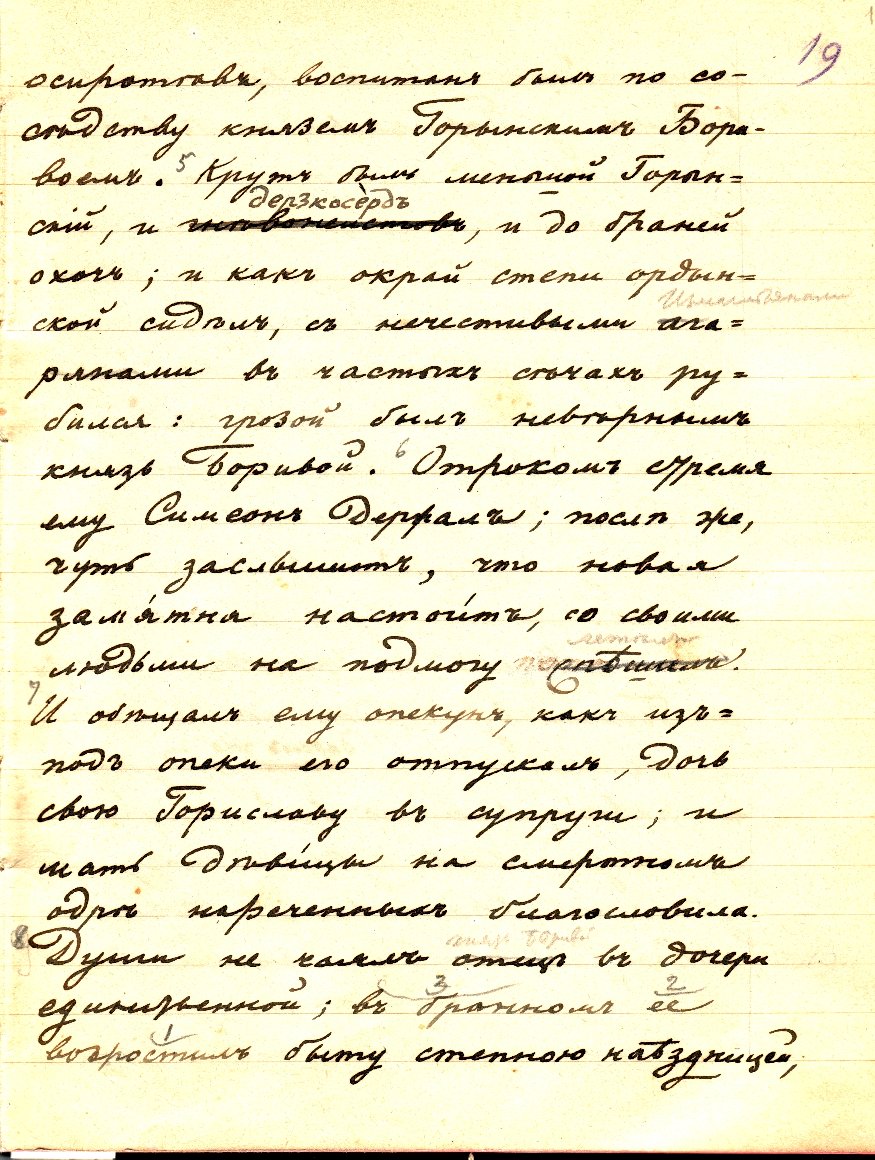 19
осиротѣвъ, воспитанъ былъ по со-
сѣдству княземъ Горынскимъ Бори-
воемъ. 5 Крутъ былъ меньшой Горын=
дерзкосердъ
скій, и гнѣвонеистовъ, и до браней
охочь; и какъ окрай степи ордын=
Измаильтянами
ской сидѣлъ, съ нечестивыми ага=
рянами въ частыхъ сѣчахъ ру=
бился: грозой былъ невѣрнымъ
князь Боривой. 6 Отрокомъ стремя
ему Симеонъ держалъ; послѣ же,
чуть заслышитъ, что новая
замя́тня настои́тъ, со своими
летитъ
людьми на подмогу спѣшилъ.
7 И обѣщалъ ему опекунъ, какъ изъ=
подъ опеки его отпускалъ, дочь
свою Гориславу въ супруги; и
мать дѣви́цы на смертномъ
одрѣ нареченныхъ благословила.
князь Боривой
8 Души не чаялъ отецъ въ дочери
3 2
единственной; въ бранномъ ее
1
возростилъ быту степною наѣздницей,